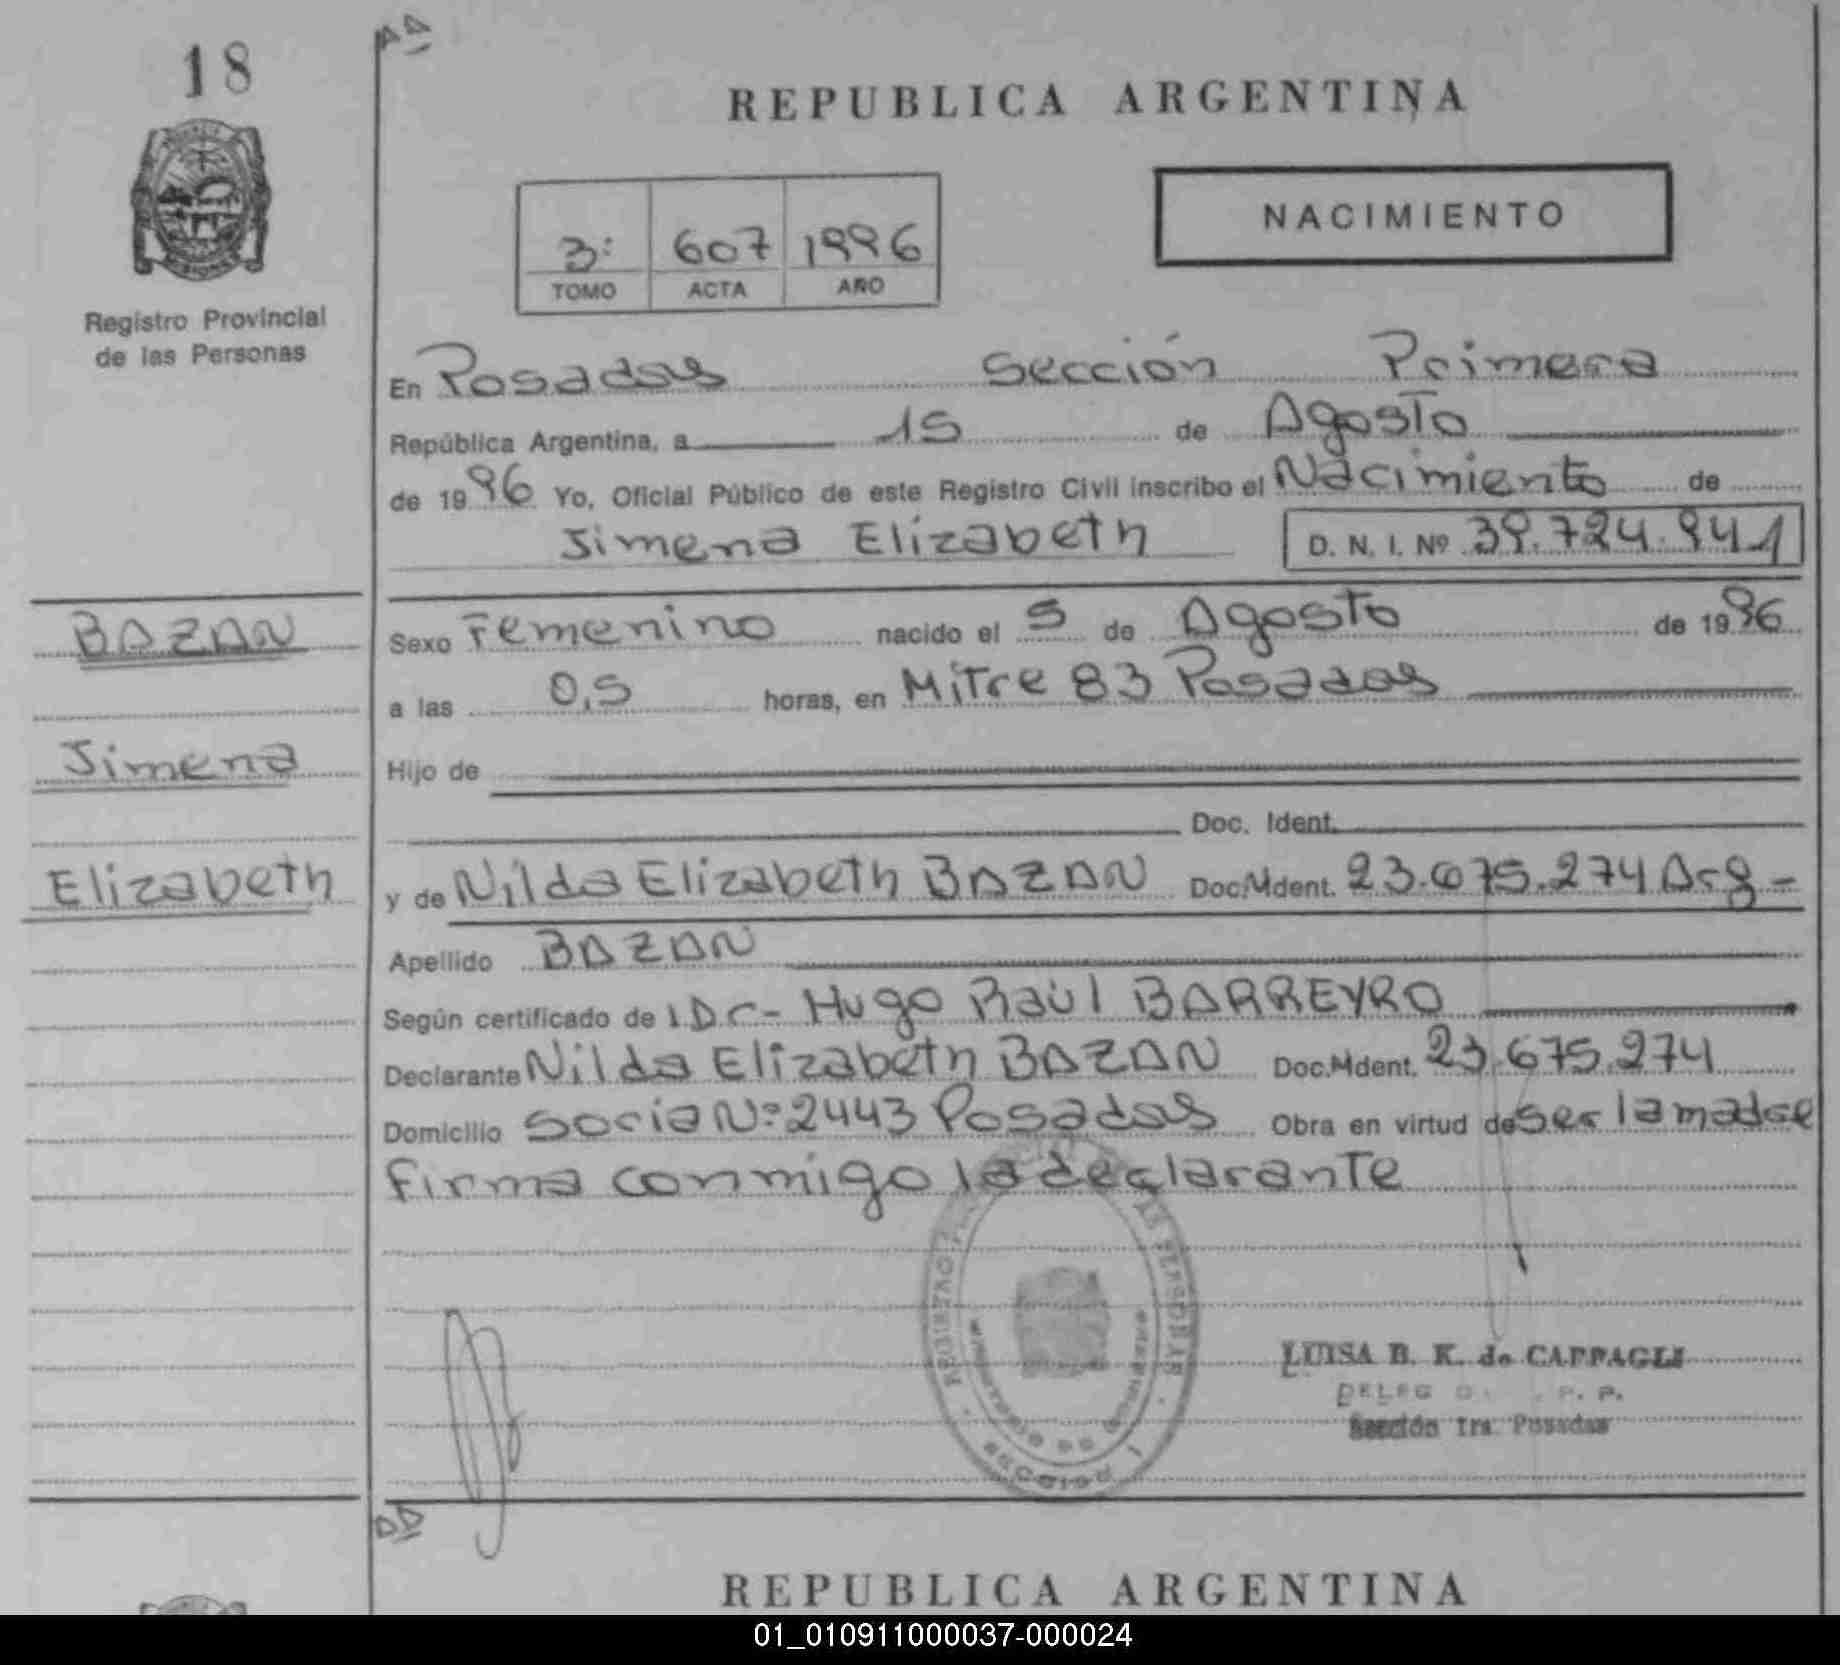 18
REPUBLICA ARGENTINA
NACIMIENTO
3: 607 1996
TOMO ACTA AÑO
Registro Provincial
de las Personas
En Posadas Sección Primera
República Argentina, a 15 de Agosto
de 1996 Yo, Oficial Público de este Registro Civil inscribo el Nacimiento de
Jimena Elizabeth D. N. I. Nº 39.724.941
BAZAN
Sexo Femenino nacido el 5 de Agosto de 1996
a las 0,5 horas, en Mitre 83 Posadas
Jimena
Hijo de
Doc. Ident.
Elizabeth
y de Nilda Elizabeth BAZAN Doc. Ident. 23.675.274 Arg-
Apellido BAZAN
Según certificado de l Dr- Hugo Raúl BARREYRO
Declarante Nilda Elizabeth BAZAN Doc. Ident. 23.675.274
Domicilio Soria Nº 2443 Posadas Obra en virtud de ser la madre
Firma conmigo la declarante
REGISTRO PERSONAS
MINISTERIO DE GOBIERNO
SECCION 1
LUISA B. K. de CAPPAGLI
Sección 1ra. Posadas
REPUBLICA ARGENTINA
01_010911000037-000024